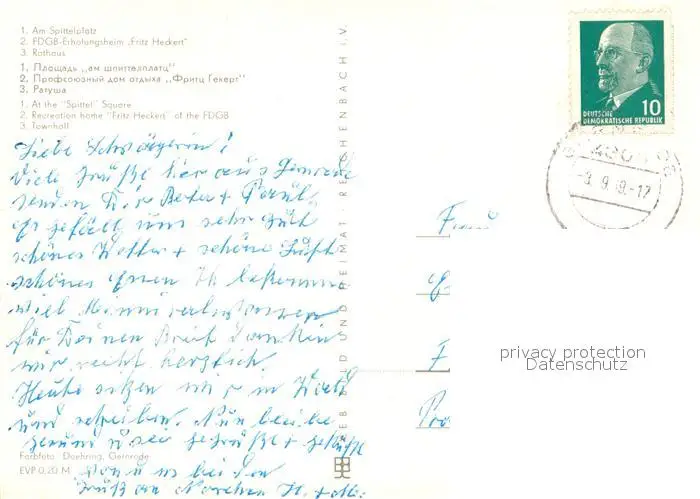 1. Am Spittelplatz
2. FDGB-Erholungsheim „Fritz Heckert"
3. Rathaus
1. Площадь „ам шпиттелплатц"
2. Профсоюзный дом отдыха „Фритц Гекерт"
3. Ратуша
1. At the "Spittel" Square
2. Recreation home "Fritz Heckert" of the FDGB
3. Townhall
Liebe Schwägerin!
Viele Grüße hier aus Gernrode
senden Dir Berta + Paul.
Es gefällt uns sehr gut
schönes Wetter + schöne Luft
schönes Essen
viel
für Deinen Brief danken
wir recht herzlich.
Heute sitzen wir im Wald
und schreiben. Nun bleibe
gesund u sei gegrüßt + geküßt
von uns beiden
Gruß an
Farbfoto: Doehring, Gernrode
EVP 0,20 M
BILD UND HEIMAT REICHENBACH I. V.
10
DEUTSCHE
DEMOKRATISCHE REPUBLIK
Frau
privacy protection
Datenschutz